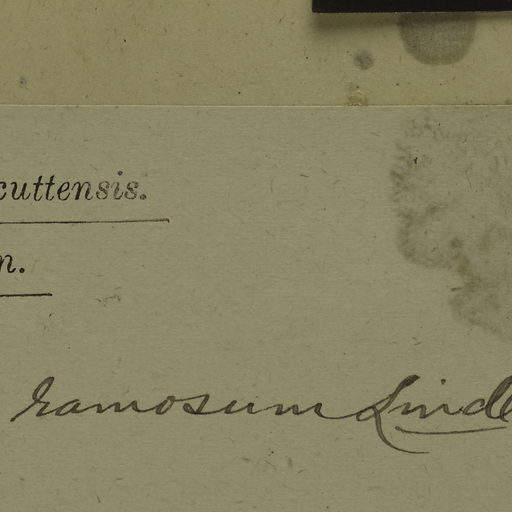 cuttensis.
n.
ramosum Lindl